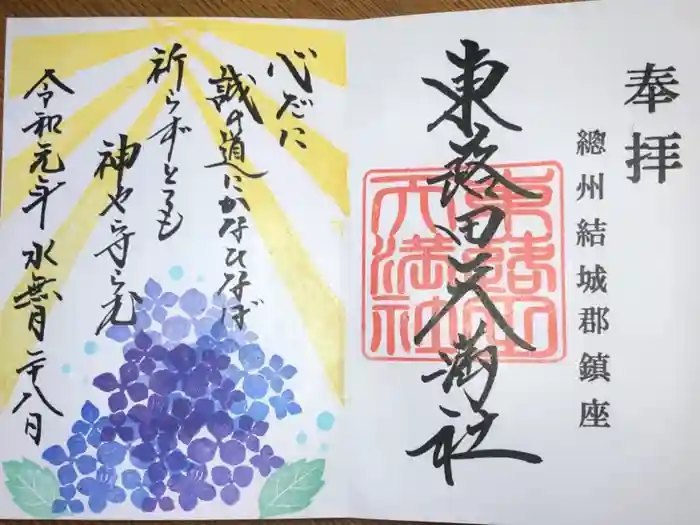 奉拝
總州結城郡鎮座
東蕗田天満社
東蕗田天満社
心だに
誠の道にかなひなば
祈らずとても
神や守らむ
令和元年水無月二十八日